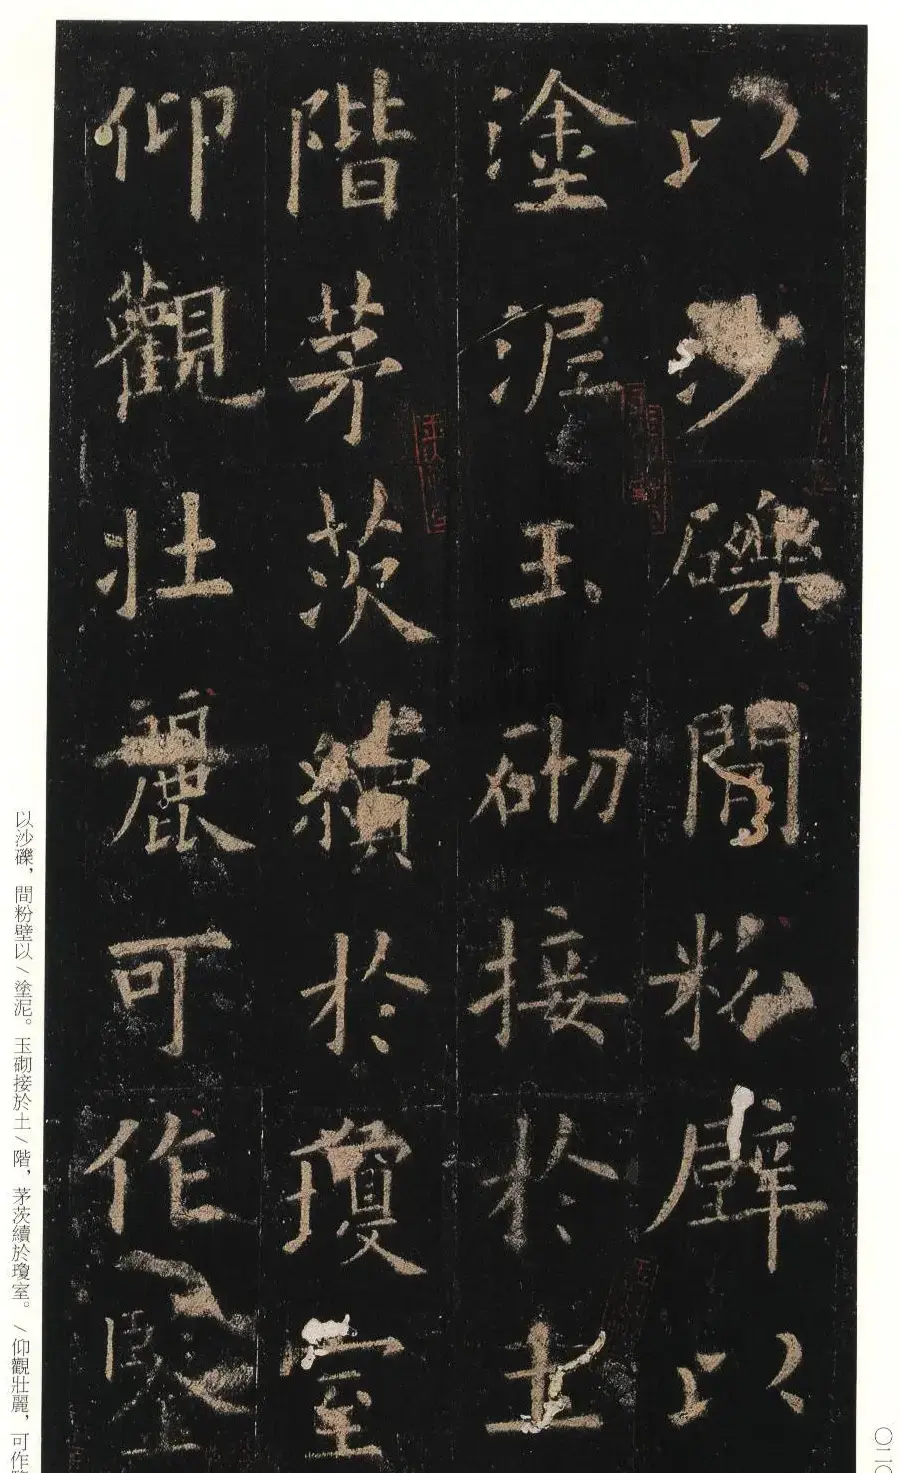 以沙礫間粉壁以
塗泥玉砌接於土
階茅茨續於瓊室
仰觀壯麗可作
以沙礫，間粉壁以/塗泥。玉砌接於土/階，茅茨續於瓊室。/仰觀壯麗，可作
〇二